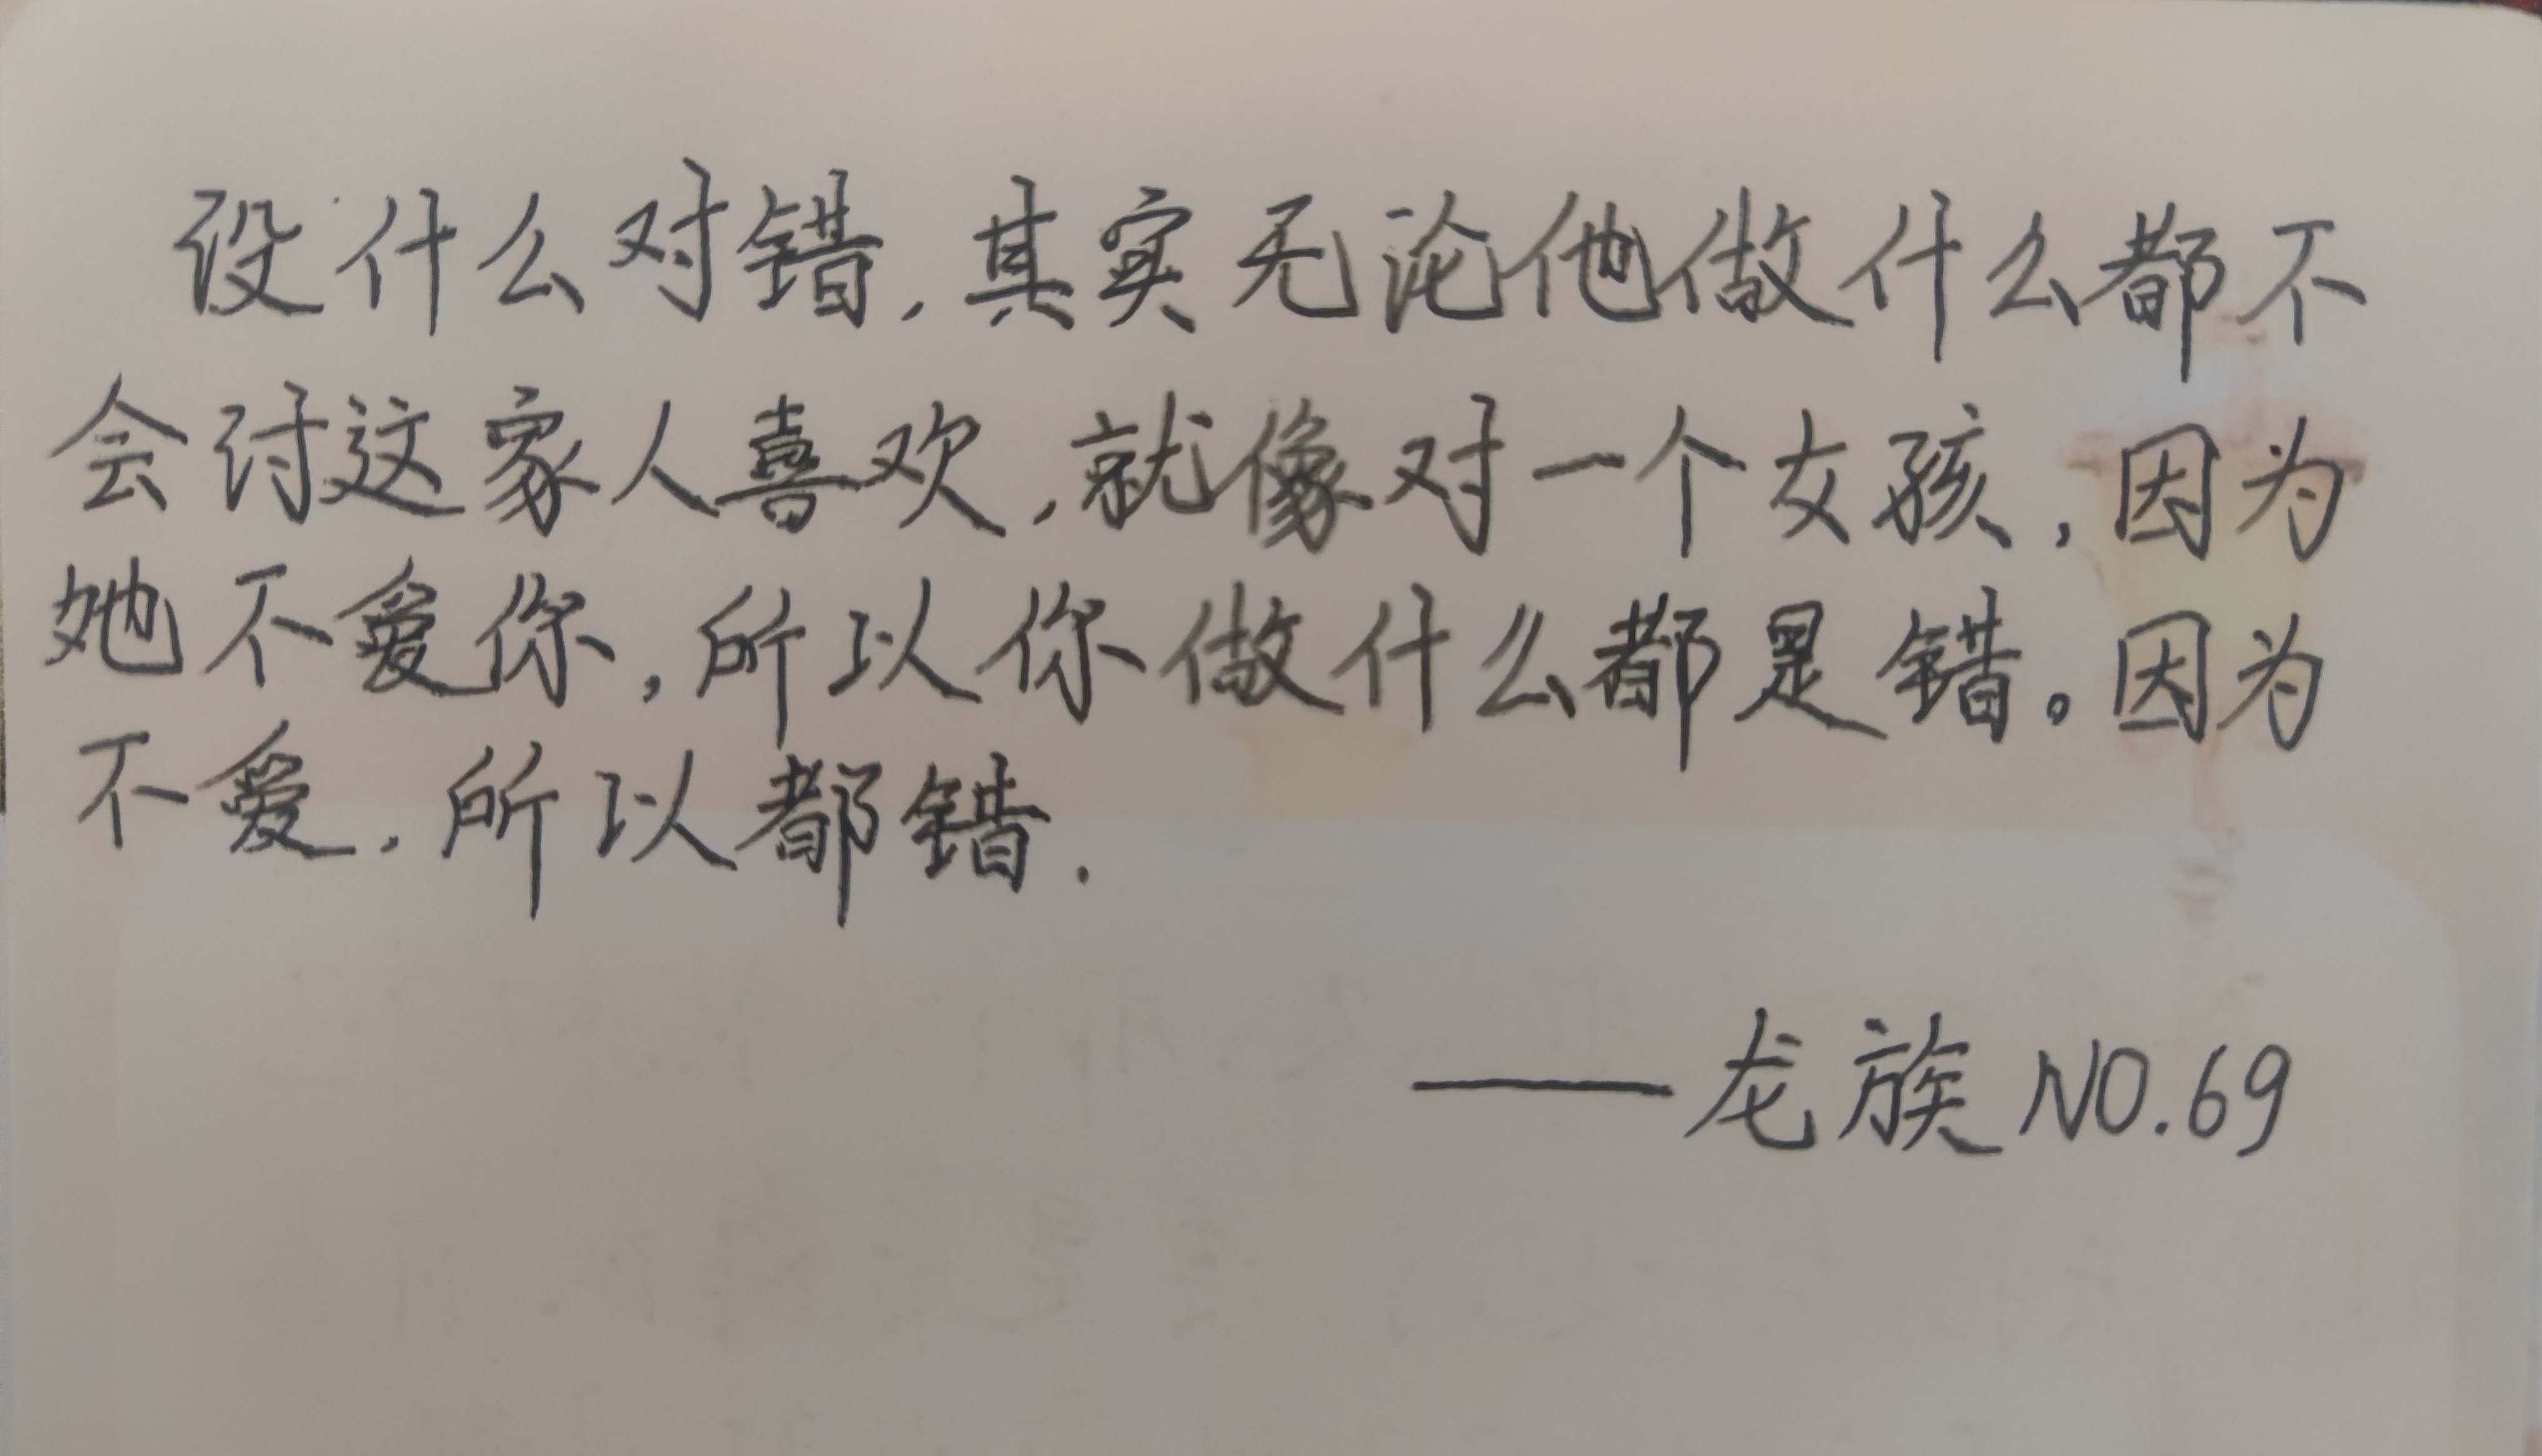 设什么对错,其实无论他做什么都不
会讨这家人喜欢,就像对一个女孩,因为
她不爱你,所以你做什么都是错。因为
不爱,所以都错.
——龙族 NO.69